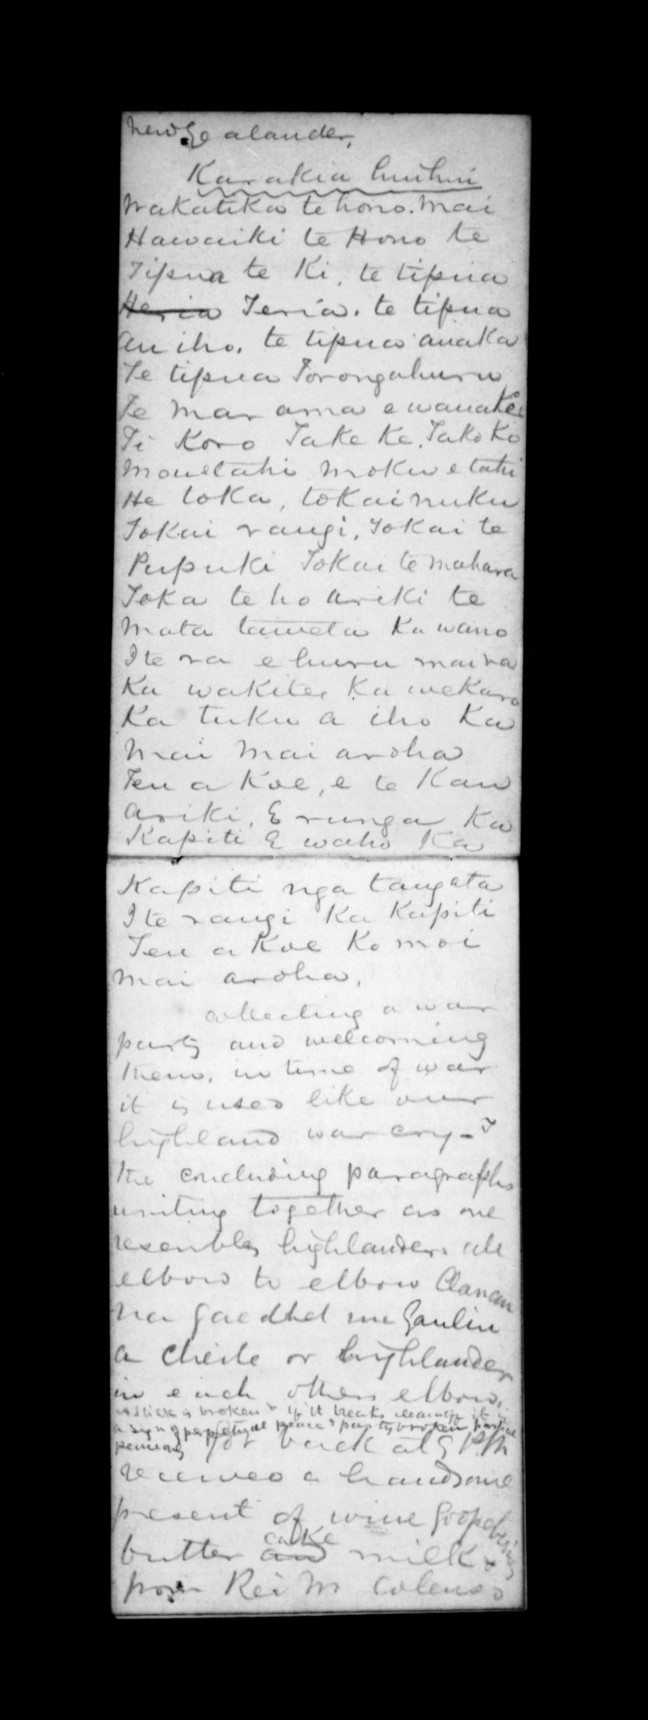 New Zealander,
Karakia huihui
Wakatika te hono. Mai
Hawaiki te Hono te
Tipua te Ki, te tipua
Heria Teria. te tipua
an iho. te tipua anaka
Te tipua Torongahuru
Te Mar ama e wanakei
Ti Koro Take Ke. Tako Ko
Mouetahi Moku e tahi
He toka, tokai nuku
Tokai rangi, Tokai te
Pupuki Tokai te mahara
Toka te ho ariki te
Mata taweta Ka wano
I te ra e huru mai ra
Ka wakitei Ka wekaro
Ka tuku a iho Ka
Mai Mai aroha
Ten a Koe, e te Kau
ariki. E runga Ka
Kapiti E waho Ka
Kapiti nga tangata
I te rangi Ka Kapiti
Ten a Koe Ko moi
Mai aroha.
collecting a war
party and welcoming
them. in time of war
it is used like our
highland war cry -
the concluding paragraphs
uniting together as one
resembles highlanders all
elbow to elbow Clanan
na Gaedhel me Gaulin
a cheile or highlander
in each others elbow.
a stick is broken & if it breaks
a sign of perpetual peace & partly broken partial
got back at 9 PM
received a handsome
present of wine Goosberries
butter cake and milk &
from Rei M Colenso